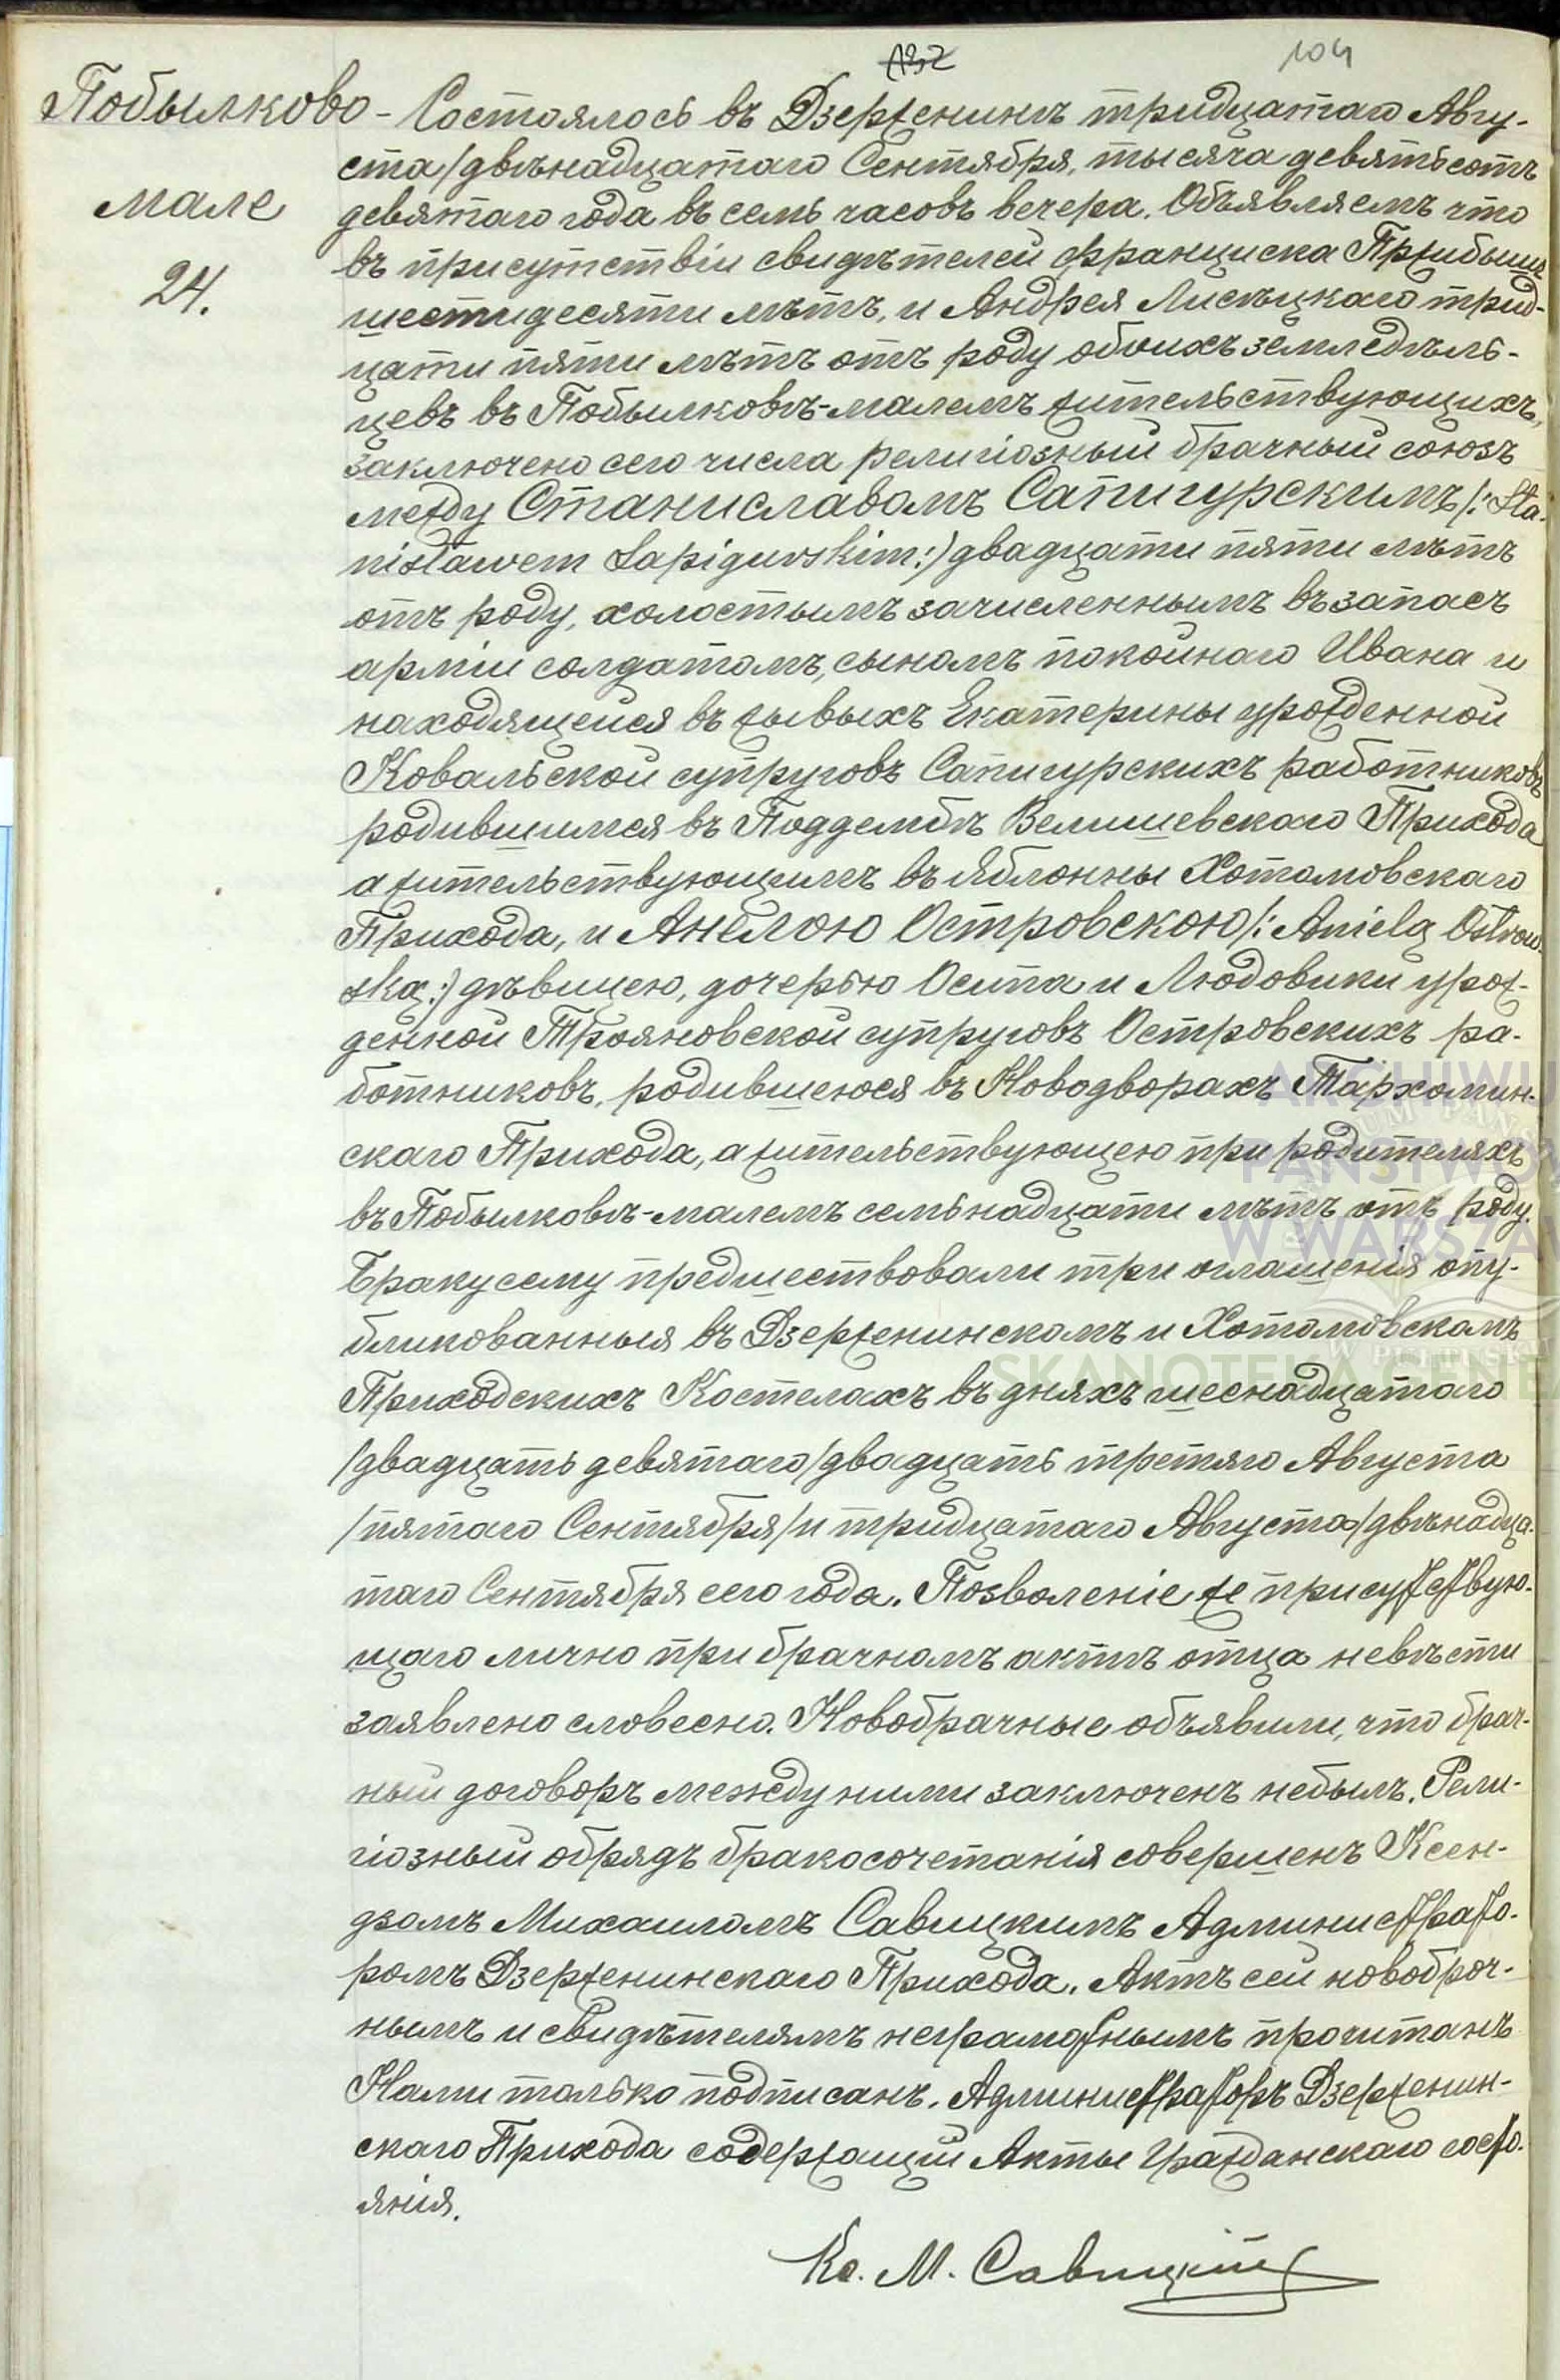 132
104
Побылково - Состоялось въ Дзерженинѣ тридцатаго Авгу-
ста/двѣнадцатаго Сентября, тысяча девятьсотъ
мале
девятаго года въ семь часовъ вечера. Объявляемъ что
въ присутствіи свидѣтелей Франциска Пржибыша
24.
шестидесяти лѣтъ, и Андрея Лисѣцкаго трид-
цати пяти лѣтъ отъ роду обоихъ земледѣль-
цевъ въ Побылковѣ-малемъ жительствующихъ,
заключено сего числа религіозный брачный союзъ
между Станиславомъ Сапигурскимъ/: Sta-
nisławem Sapigurskim:/ двадцати пяти лѣтъ
отъ роду, холостымъ зачисленнымъ въ запасъ
арміи солдатомъ, сыномъ покойнаго Ивана и
находящейся въ живыхъ Екатерины урожденной
Ковальской супруговъ Сапигурскихъ работниковъ
родившимся въ Поддембѣ Велишевскаго Прихода
а жительствующимъ въ Яблонны Хотомовскаго
Прихода, и Анелою Островскою/: Anielą Ostrow-
ską:/ дѣвицею, дочерью Осипа и Людовики урож-
денной Трояновской супруговъ Островскихъ ра-
ботниковъ, родившеюся въ Новодворахъ Тархомин-
скаго Прихода, а жительствующею при родителяхъ
въ Побылковѣ-малемъ семьнадцати лѣтъ отъ роду.
Браку сему предшествовали три оглашенія опу-
бликованныя въ Дзерженинскомъ и Хотомовскомъ
Приходскихъ Костелахъ въ дняхъ шеснадцатаго
/двадцать девятаго/двадцать третяго Августа
/пятаго Сентября/и тридцатаго Августа/двѣнадца-
таго Сентября сего года. Позволеніе же присутствую-
щаго лично при брачномъ актѣ отца невѣсти
заявлено словесно. Новобрачные объявили, что брач-
ный договоръ между ними заключенъ небылъ. Рели-
гіозный обрядъ бракосочетанія совершенъ Ксен-
дзомъ Михаиломъ Савицкимъ Администрато-
ромъ Дзерженинскаго Прихода. Актъ сей новобрач-
нымъ и свидѣтелямъ неграмотнымъ прочитанъ
Нами только подписанъ. Администраторъ Дзерженин-
скаго Прихода содержащій Акты Гражданскаго состо-
янія.
Кс. М. Савицкій
ARCHIWU
PAŃSTWOW
W WARSZAW
W PUŁTUSKU
SKANOTEKA GENEA